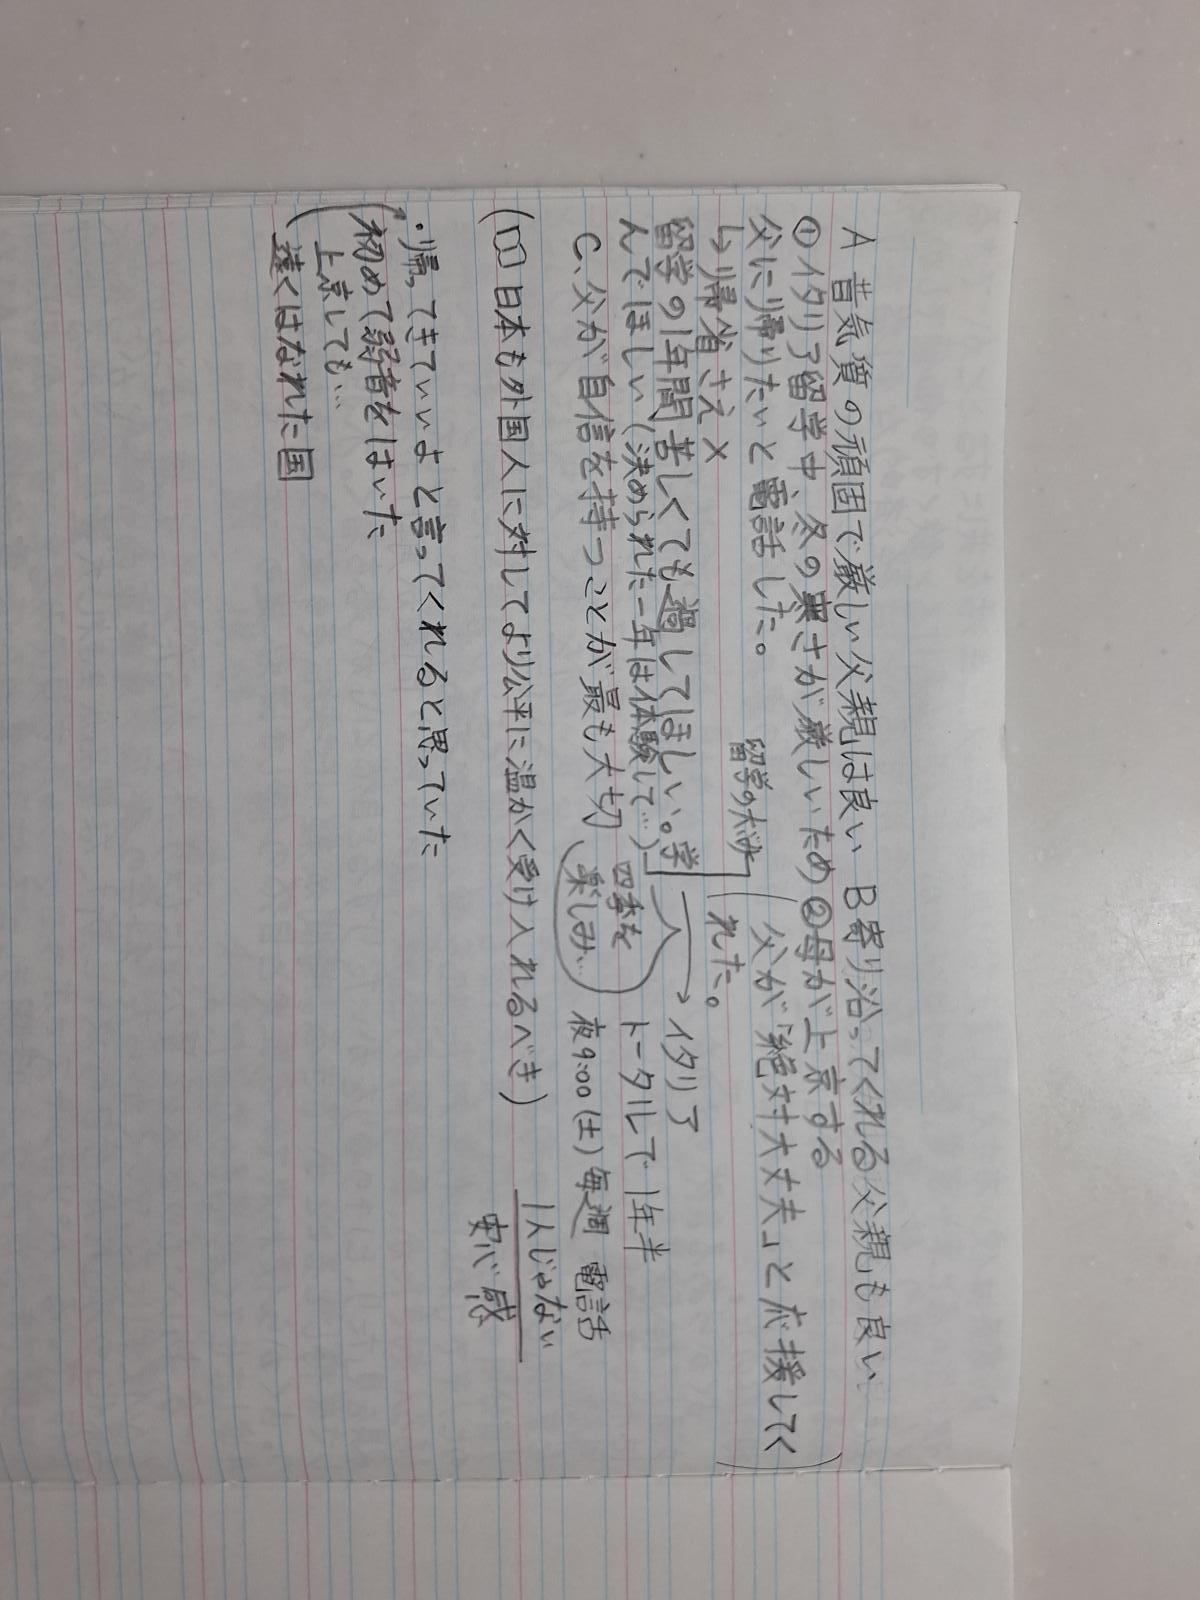 A 昔気質の頑固で厳しい父親は良い B寄り沿ってくれる父親も良い
①イタリア留学中、冬の寒さが厳しいため②母が上京する
父に帰りたいと電話した。
父が「絶対大丈夫」と応援してく
れた。
↳帰省さえ×
留学の大変さ
留学の1年間苦しくても過してほしい。学
んでほしい(決められた一年は体験して…)
→イタリア
トータルで1年半
四季を
楽しみ…
C、父が自信を持つことが最も大切
夜9:00(土)毎週 電話
1人じゃない
安心感
(D 日本も外国人に対してより公平に温かく受け入れるべき)
・帰ってきていいよと言ってくれると思っていた
初めて弱音をはいた
上京しても…
遠くはなれた国